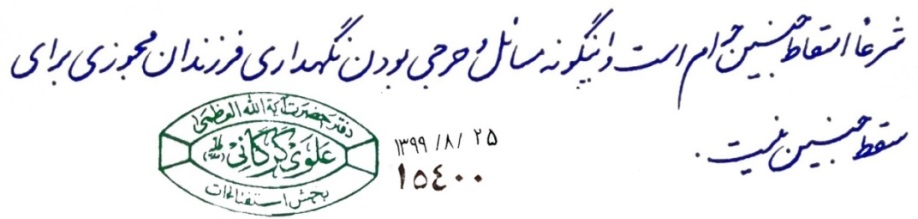 شرعا اسقاط جنین حرام است و اینگونه مسائل و حرجی بودن نگهداری فرزندان مجوزی برای
سقط جنین نیست.
دفتر حضرت آیة الله العظمی
علوی گرگانی
بخش استفتائات
۱۳۹۹/۸/۲۵
۱۵۴۰۰